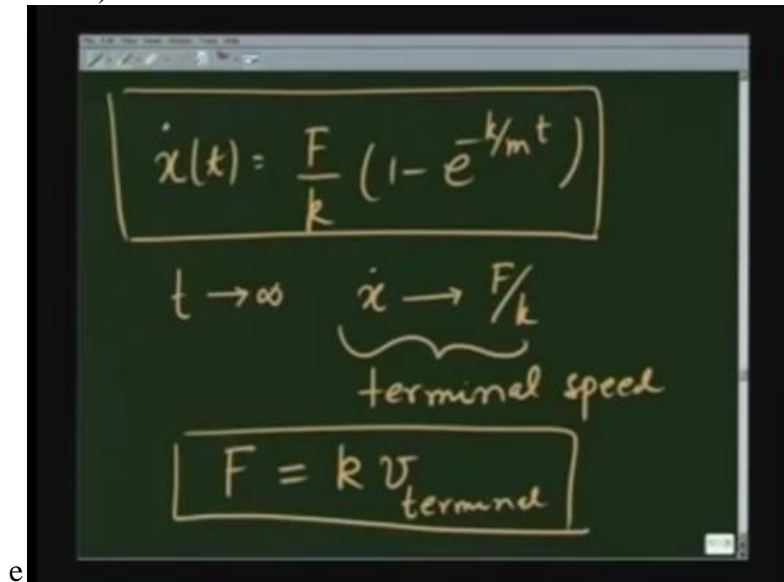 ẋ(t) = F/k (1 - e^{-k/m t})
t → ∞ ẋ → F/k
terminal speed
F = k v_{terminal}
e